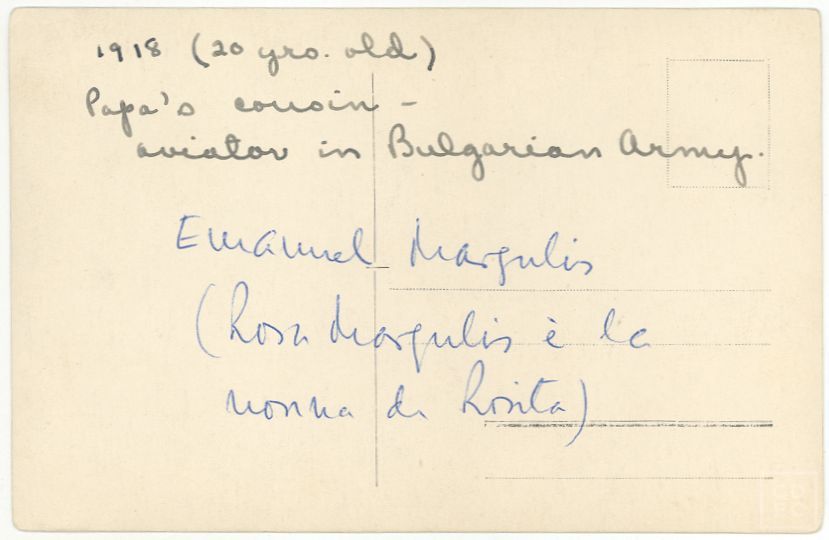 1918 (20 yrs. old)
Papa's cousin -
aviator in Bulgarian Army.
Emanuel Margulis
(Rosa Margulis è la
nonna di Rosita)
CDEC